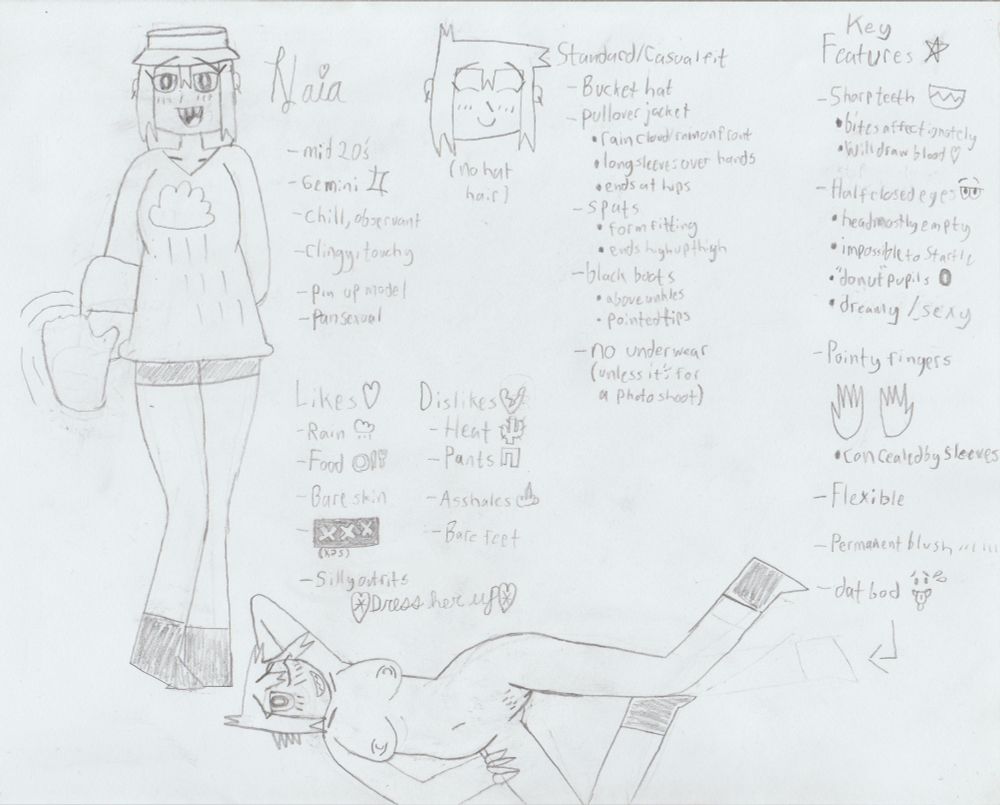 Naia
- mid 20's
- Gemini
- Chill, observant
- Clingy, touchy
- pin up model
- Pansexual
(no hat
hair)
Standard/Casual fit
- Bucket hat
- pullover jacket
• rain cloud/rain on front
• long sleeves over hands
• ends at hips
- spats
• form fitting
• ends high up thigh
- black boots
• above ankles
• pointed tips
- no underwear
(unless it's for
a photo shoot)
Key
Features
- Sharp teeth
• bites affectionately
• Will draw blood
- Half closed eyes
• head mostly empty
• impossible to startle
• "donut" pupils
• dreamy / sexy
- Pointy fingers
• concealed by sleeves
- Flexible
- Permanent blush
- dat bod
Likes
- Rain
- Food
- Bare skin
- XXX
- Silly outfits
Dress her up
Dislikes
- Heat
- Pants
- Assholes
- Bare feet